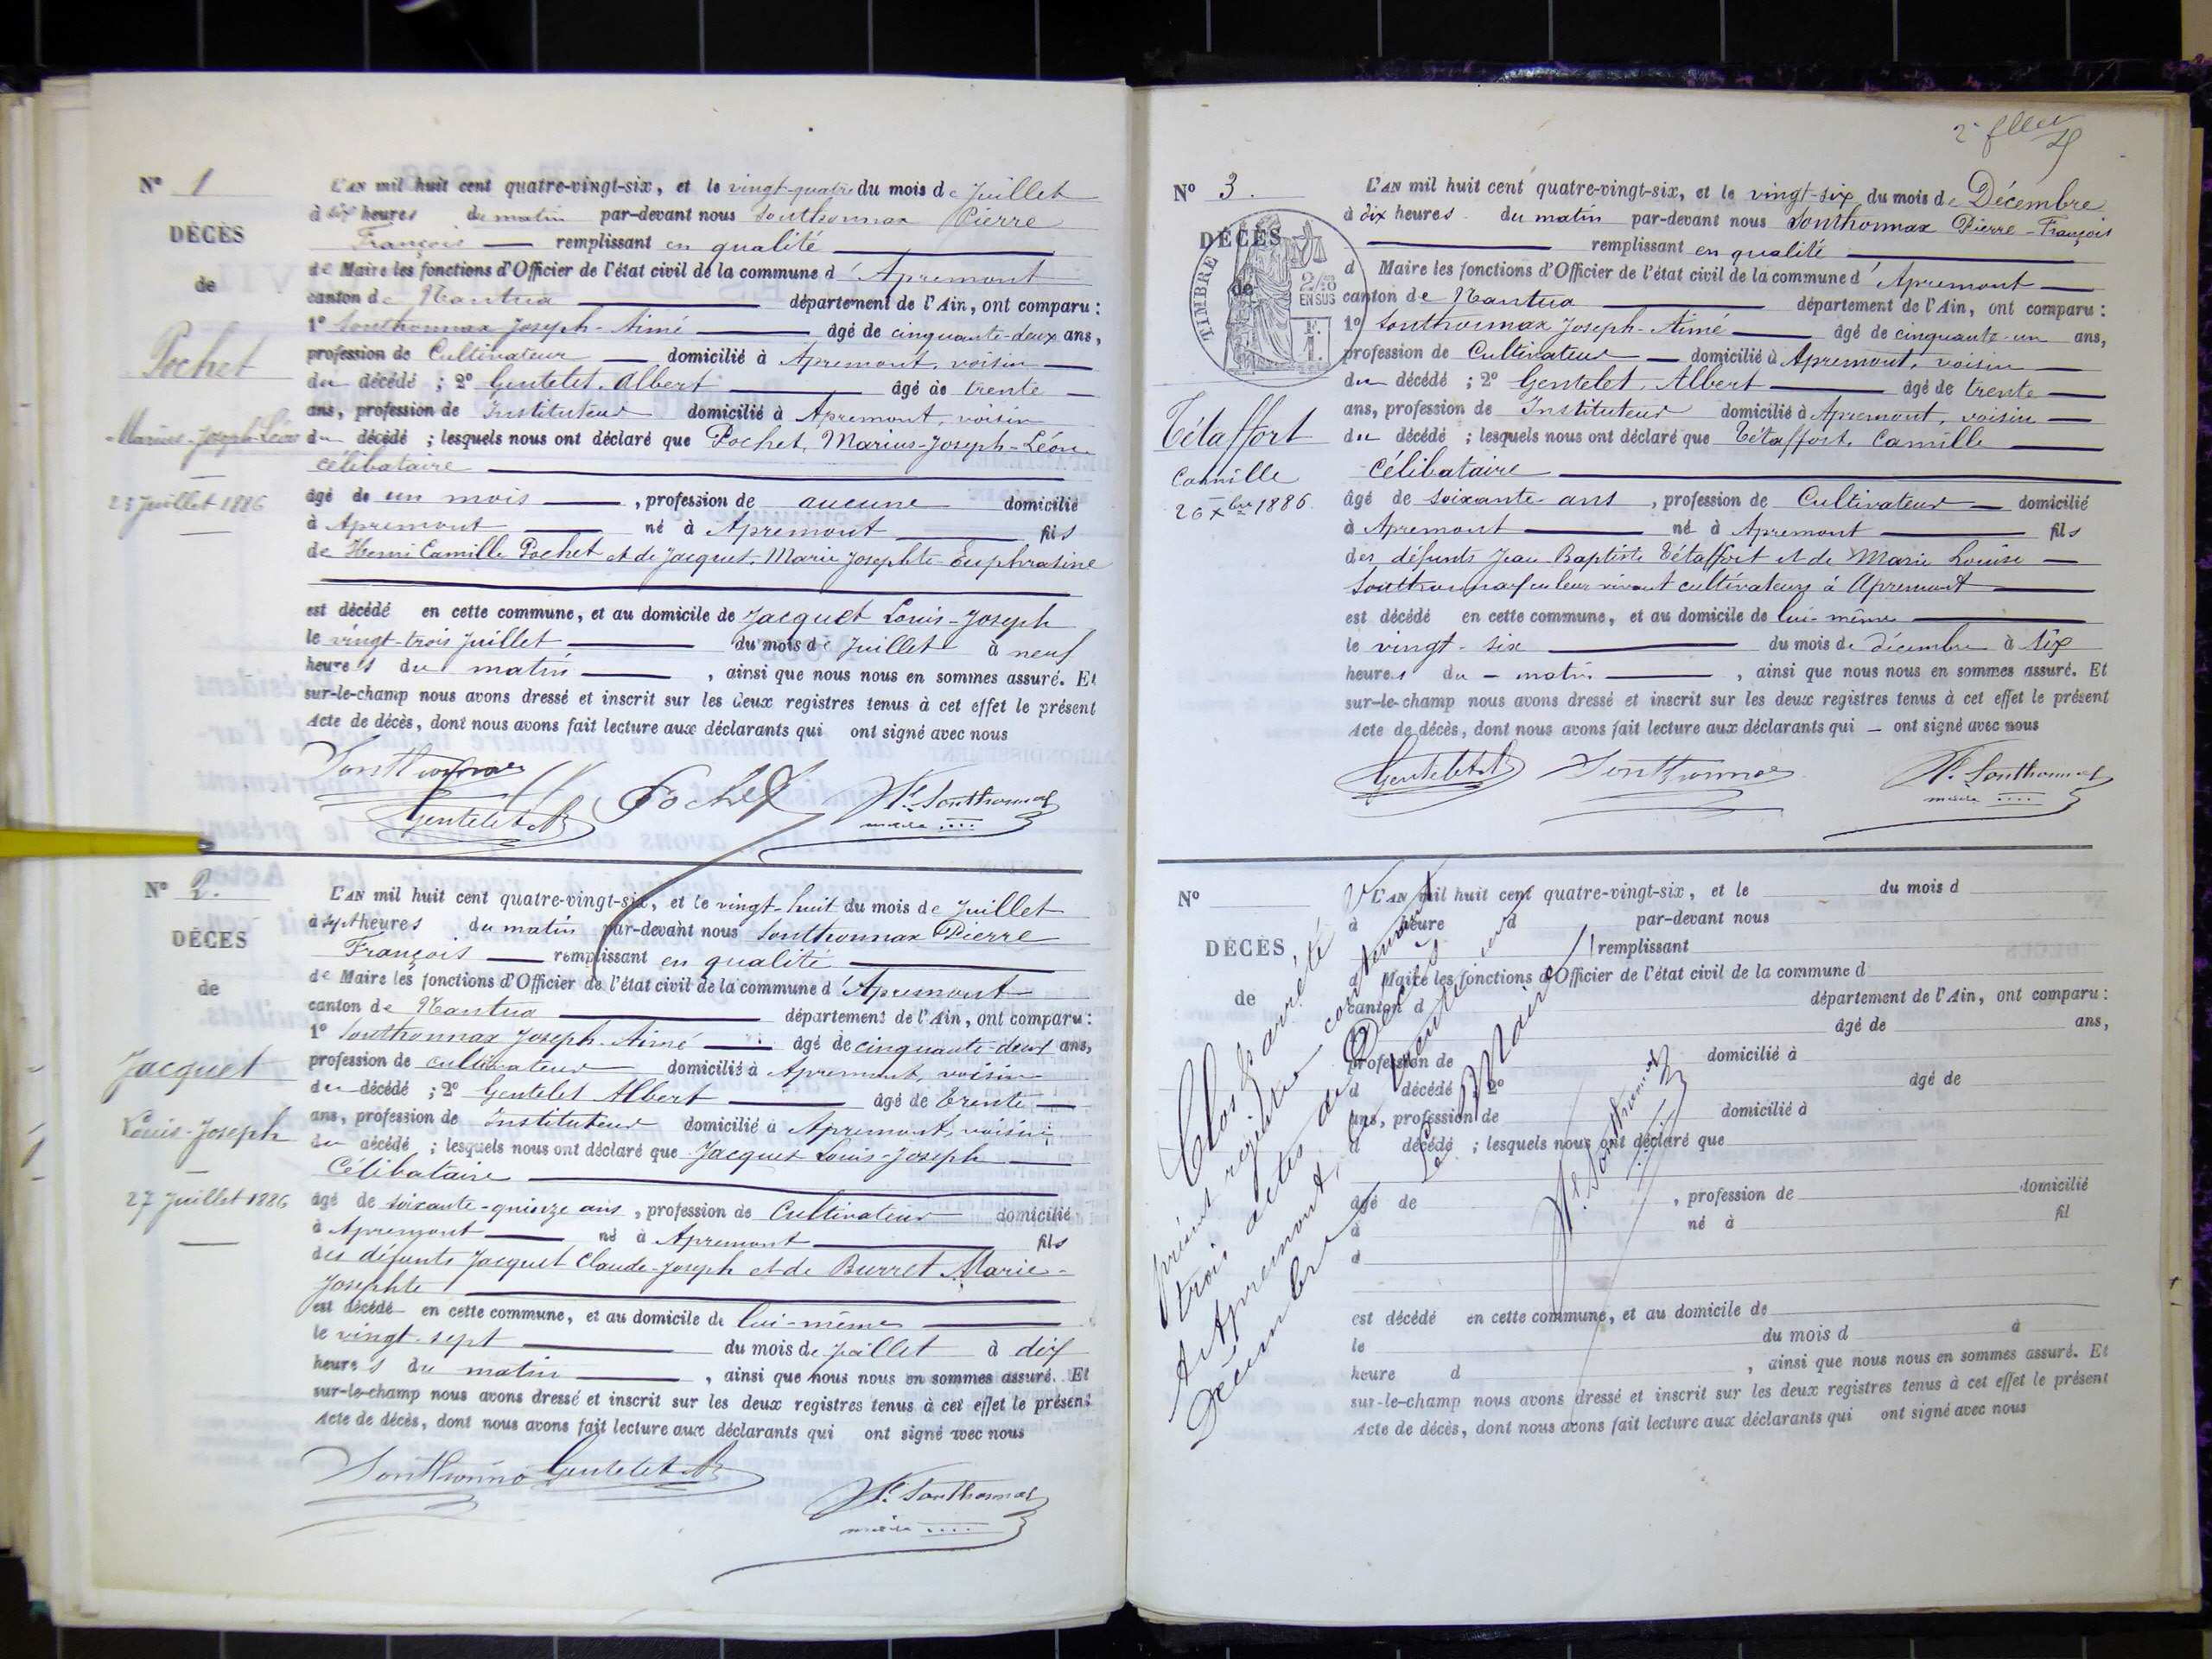 N° 1
DÉCÈS
de
Pochet
Marius-Joseph-Léon
23 Juillet 1886
L'AN mil huit cent quatre-vingt-six, et le vingt-quatre du mois de Juillet
à dix heures du matin par-devant nous Southonnax Pierre
François remplissant en qualité
de Maire les fonctions d'Officier de l'état civil de la commune d'Apremont
canton de Nantua département de l'Ain, ont comparu :
1° Southonnax Joseph-Aimé âgé de cinquante-deux ans,
profession de Cultivateur domicilié à Apremont, voisin
du décédé ; 2° Gentelet, Albert âgé de trente
ans, profession de Instituteur domicilié à Apremont, voisin
du décédé ; lesquels nous ont déclaré que Pochet, Marius-Joseph-Léon
célibataire
âgé de un mois, profession de aucune domicilié
à Apremont né à Apremont fils
de Henri Camille Pochet et de Jacquet, Marie Josephte-Euphrasine
est décédé en cette commune, et au domicile de Jacquet Louis-Joseph
le vingt-trois Juillet du mois de Juillet à neuf
heures du matin, ainsi que nous nous en sommes assuré. Et
sur-le-champ nous avons dressé et inscrit sur les deux registres tenus à cet effet le présent
Acte de décès, dont nous avons fait lecture aux déclarants qui ont signé avec nous
Southonnax Pochet Southonnax
Gentelet maire
N° 2.
DÉCÈS
de
Jacquet
Louis-Joseph
27 Juillet 1886
L'AN mil huit cent quatre-vingt-six, et le vingt-huit du mois de Juillet
à sept heures du matin par-devant nous Southonnax Pierre
François remplissant en qualité
de Maire les fonctions d'Officier de l'état civil de la commune d'Apremont
canton de Nantua département de l'Ain, ont comparu :
1° Southonnax Joseph-Aimé âgé de cinquante-deux ans,
profession de cultivateur domicilié à Apremont, voisin
du décédé ; 2° Gentelet Albert âgé de trente
ans, profession de Instituteur domicilié à Apremont, voisin
du décédé ; lesquels nous ont déclaré que Jacquet Louis-Joseph
Célibataire
âgé de soixante-quinze ans, profession de Cultivateur domicilié
à Apremont né à Apremont fils
des défunts Jacquet Claude-Joseph et de Burret Marie-
Josephte
est décédé en cette commune, et au domicile de lui-même
le vingt-sept du mois de Juillet à dix
heures du matin, ainsi que nous nous en sommes assuré. Et
sur-le-champ nous avons dressé et inscrit sur les deux registres tenus à cet effet le présent
Acte de décès, dont nous avons fait lecture aux déclarants qui ont signé avec nous
Southonnax Gentelet Southonnax
maire
N° 3.
DÉCÈS
de
TIMBRE
EN SUS
Tétaffort
Camille
26 Xbre 1886
L'AN mil huit cent quatre-vingt-six, et le vingt-six du mois de Décembre
à dix heures du matin par-devant nous Southonnax Pierre-François
remplissant en qualité
d Maire les fonctions d'Officier de l'état civil de la commune d'Apremont
canton de Nantua département de l'Ain, ont comparu :
1° Southonnax Joseph-Aimé âgé de cinquante-un ans,
profession de Cultivateur domicilié à Apremont, voisin
du décédé ; 2° Gentelet, Albert âgé de trente
ans, profession de Instituteur domicilié à Apremont, voisin
du décédé ; lesquels nous ont déclaré que Tétaffort Camille
Célibataire
âgé de soixante-ans, profession de Cultivateur domicilié
à Apremont né à Apremont fils
des défunts Jean Baptiste Tétaffort et de Marie Louise
Southonnax en leur vivant cultivateurs à Apremont
est décédé en cette commune, et au domicile de lui-même
le vingt-six du mois de décembre à six
heures du matin, ainsi que nous nous en sommes assuré. Et
sur-le-champ nous avons dressé et inscrit sur les deux registres tenus à cet effet le présent
Acte de décès, dont nous avons fait lecture aux déclarants qui ont signé avec nous
Gentelet Southonnax Southonnax
maire
N°
DÉCÈS
de
L'AN mil huit cent quatre-vingt-six, et le du mois d
à heure d par-devant nous
remplissant
d Maire les fonctions d'Officier de l'état civil de la commune d
canton d département de l'Ain, ont comparu :
âgé de ans,
profession de domicilié à
d décédé 2° âgé de
ans, profession de domicilié à
d décédé ; lesquels nous ont déclaré que
âgé de , profession de domicilié
à né à fil
d
est décédé en cette commune, et au domicile de
le du mois d à
heure d , ainsi que nous nous en sommes assuré. Et
sur-le-champ nous avons dressé et inscrit sur les deux registres tenus à cet effet le présent
Acte de décès, dont nous avons fait lecture aux déclarants qui ont signé avec nous
Clos & arrêté
présent registre contenant
trois actes de Décès
A Apremont, le trente un
Décembre
Le Maire
Southonnax